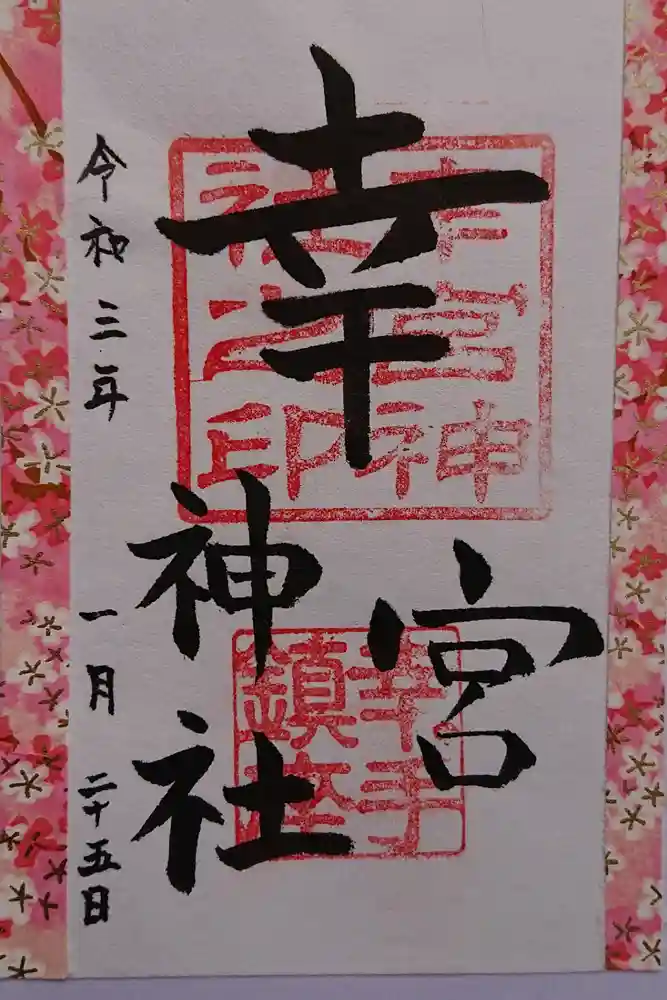 幸宮
神社
幸宮神
社之印
幸手
鎮座
令和三年 一月 二十五日